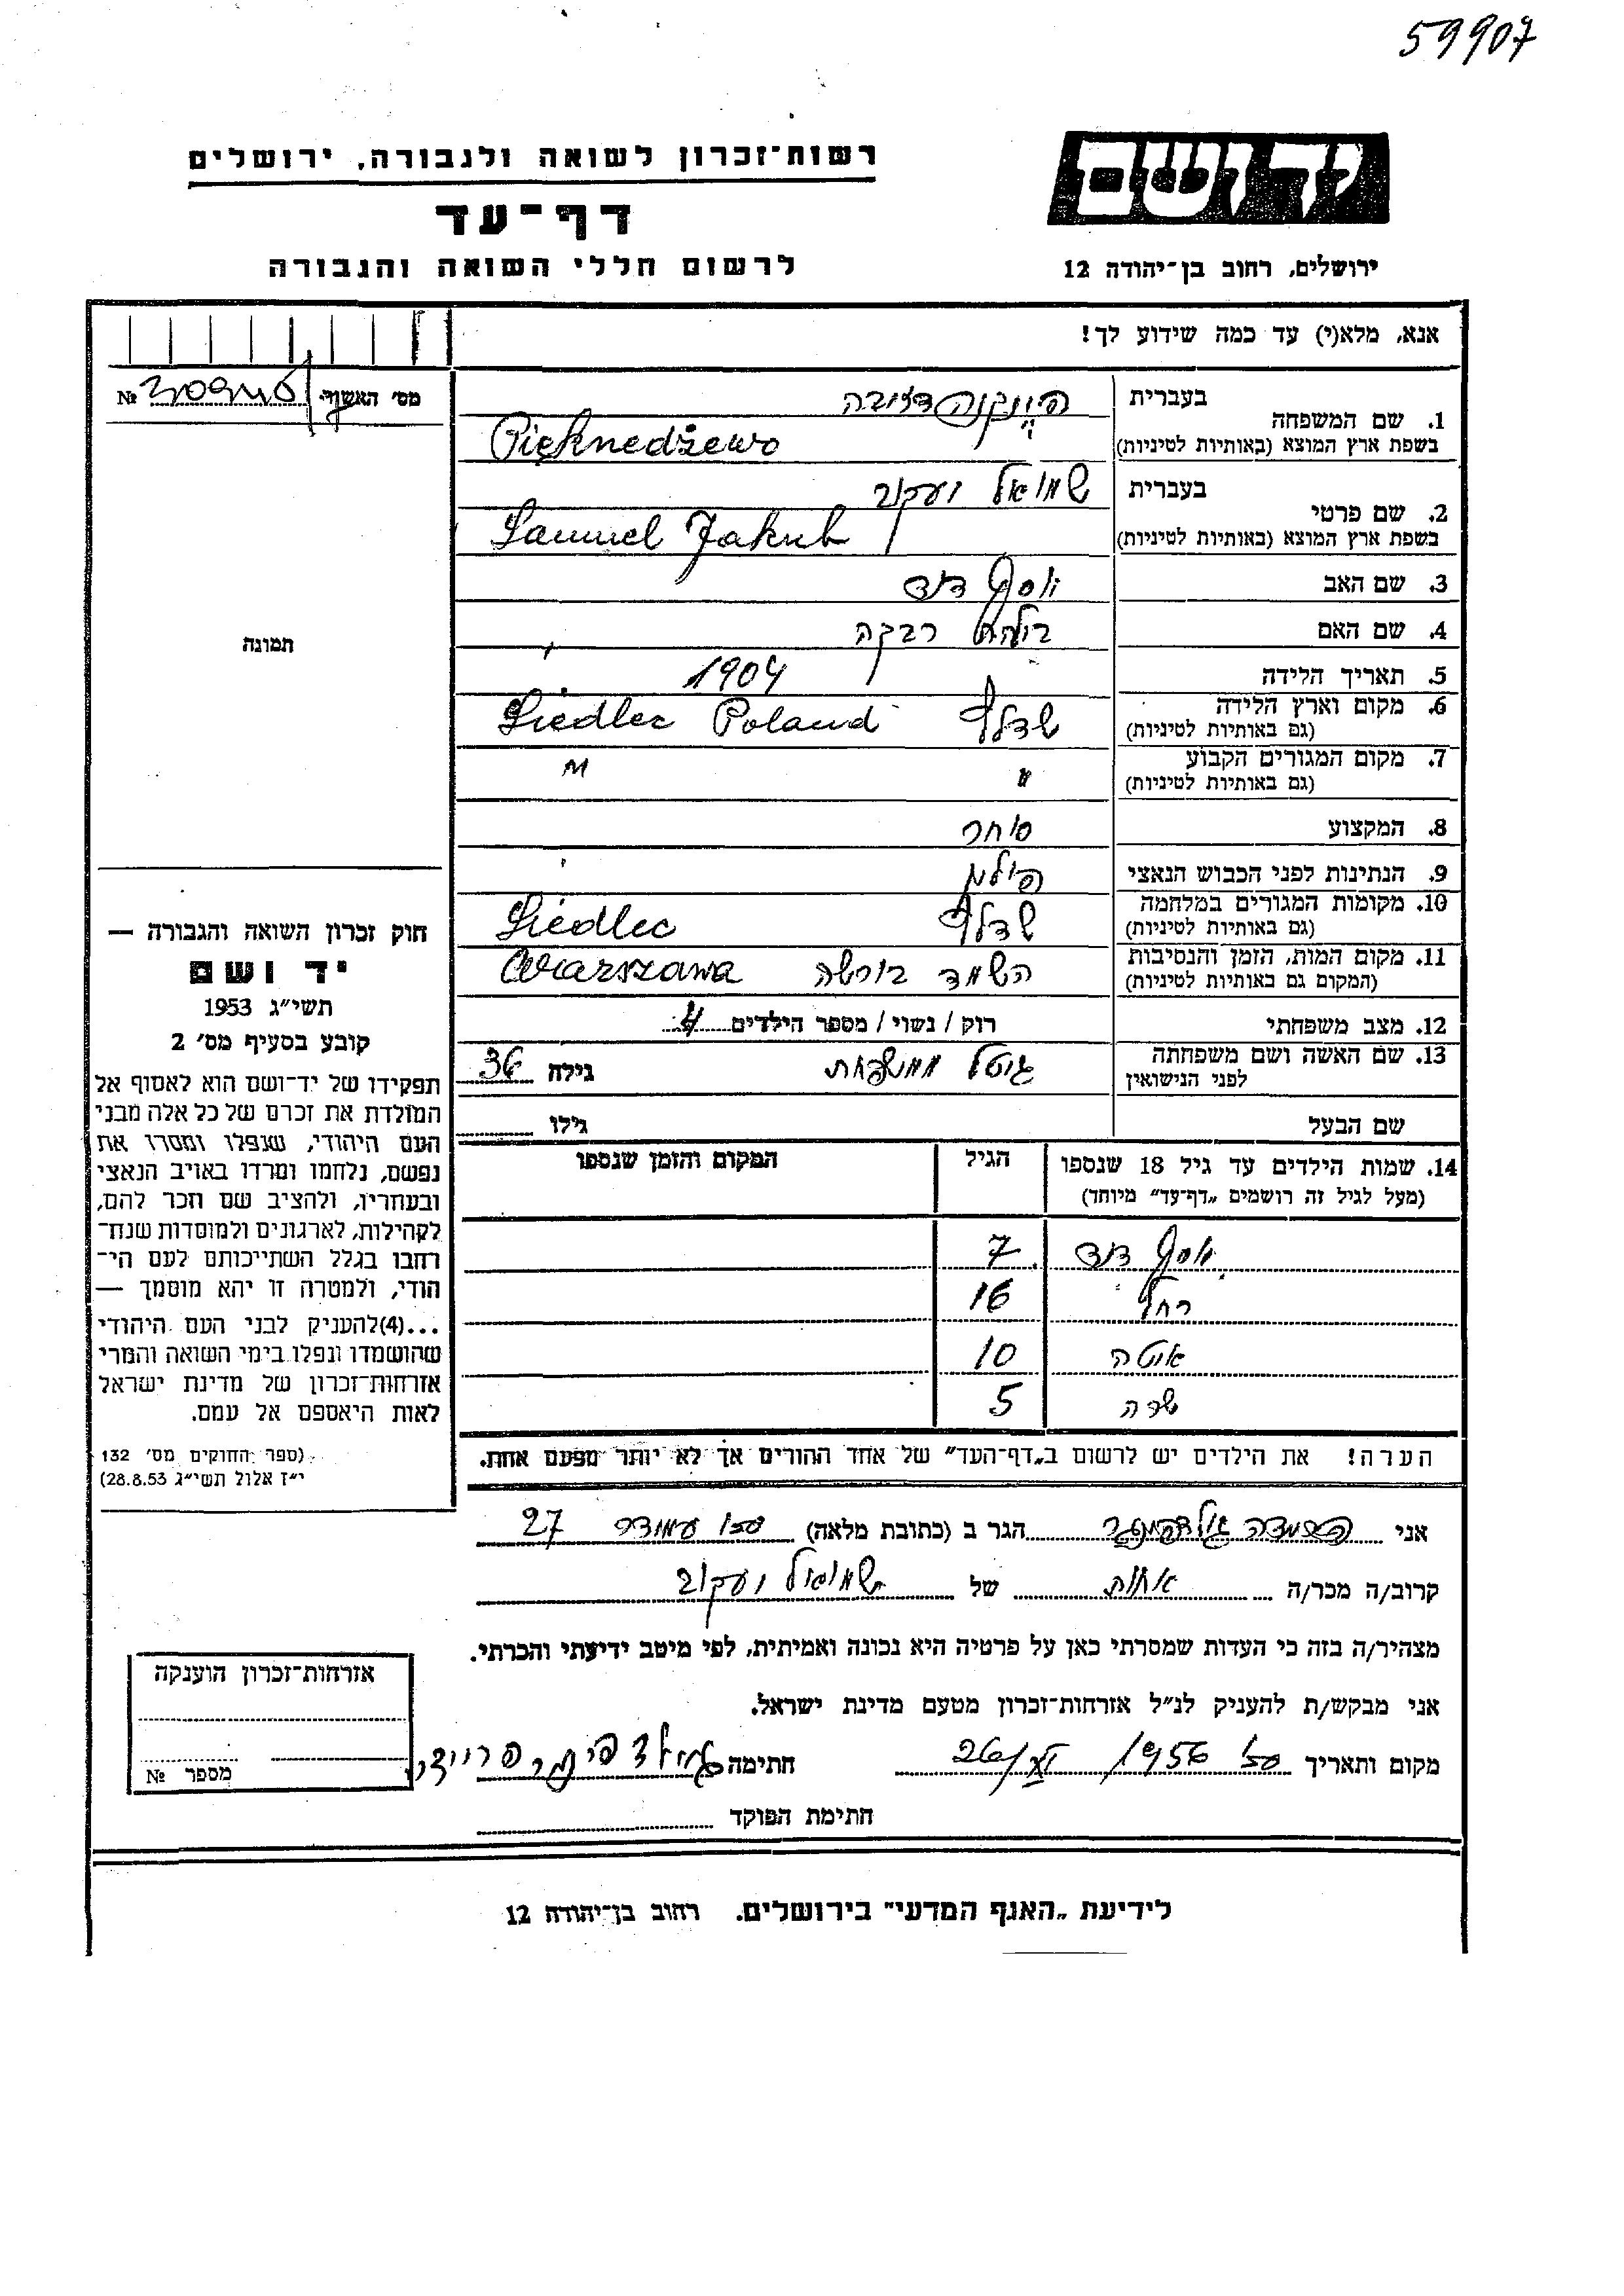 59907
יד ושם
רשות־זכרון לשואה ולגבורה, ירושלים
דף־עד
לרשום חללי השואה והגבורה
ירושלים, רחוב בן־יהודה 12
אנא, מלא(י) עד כמה שידוע לך!
מס׳ האשף № 
1. שם המשפחה
בעברית
בשפת ארץ המוצא (באותיות לטיניות) Pięknedżewo
2. שם פרטי
בעברית שמואל יעקב
בשפת ארץ המוצא (באותיות לטיניות) Samuel Jakub
3. שם האב יוסף דוד
4. שם האם רבקה
5. תאריך הלידה 1904
6. מקום וארץ הלידה שדלץ Siedlec Poland
(גם באותיות לטיניות)
7. מקום המגורים הקבוע
(גם באותיות לטיניות) " "
8. המקצוע סוחר
9. הנתינות לפני הכבוש הנאצי פולין
10. מקומות המגורים במלחמה שדלץ Siedlec
(גם באותיות לטיניות)
11. מקום המות, הזמן והנסיבות הושמד בורשה Warszawa
(המקום גם באותיות לטיניות)
12. מצב משפחתי רוק / נשוי / מספר הילדים 4
13. שם האשה ושם משפחתה גוטל גילה 36
לפני הנישואין
שם הבעל גילו
14. שמות הילדים עד גיל 18 שנספו הגיל המקום והזמן שנספו
(מעל לגיל זה רושמים „דף־עד״ מיוחד)
יוסף דוד 7
רחל 16
10
שרה 5
הערה! את הילדים יש לרשום ב„דף־העד״ של אחד ההורים אך לא יותר מפעם אחת.
תמונה
חוק זכרון השואה והגבורה —
יד ושם
תשי״ג 1953
קובע בסעיף מס׳ 2
תפקידו של יד־ושם הוא לאסוף אל
המולדת את זכרם של כל אלה מבני
העם היהודי, שנפלו ומסרו את
נפשם, נלחמו ומרדו באויב הנאצי
ובעוזריו, ולהציב שם וזכר להם,
לקהילות, לארגונים ולמוסדות שנח־
רחבו בגלל השתייכותם לעם הי־
הודי, ולמטרה זו יהא מוסמך —
...(4)להעניק לבני העם היהודי
שהושמדו ונפלו בימי השואה והמרי
אזרחות־זכרון של מדינת ישראל
לאות היאספם אל עמם.
(ספר החוקים מס׳ 132
י״ז אלול תשי״ג 28.8.53)
אני הגר ב (כתובת מלאה) 27
קרוב/ה מכר/ה אחות של שמואל יעקב
מצהיר/ה בזה כי העדות שמסרתי כאן על פרטיה היא נכונה ואמיתית, לפי מיטב ידיעתי והכרתי.
אני מבקש/ת להעניק לנ״ל אזרחות־זכרון מטעם מדינת ישראל.
מקום ותאריך 1956 חתימה
חתימת הפוקד
אזרחות־זכרון הוענקה
מספר №
לידיעת „האגף המדעי״ בירושלים. רחוב בן־יהודה 12